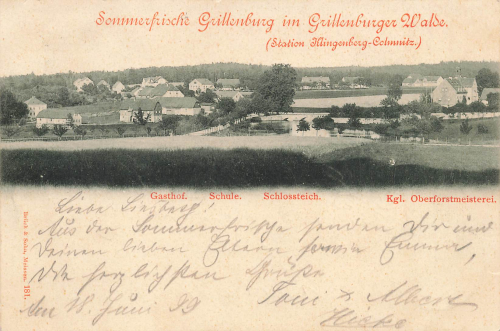 Sommerfrische Grillenburg im Grillenburger Walde.
(Station Klingenberg-Colmnitz.)
Gasthof. Schule. Schlossteich. Kgl. Oberforstmeisterei.
Liebe
Aus der Sommerfrische senden Dir und
Deinen lieben Eltern sowie Emma,
die herzlichsten Grüße
Am 18. Juni 99 Toni & Albert
Brück & Sohn, Meissen. 181.